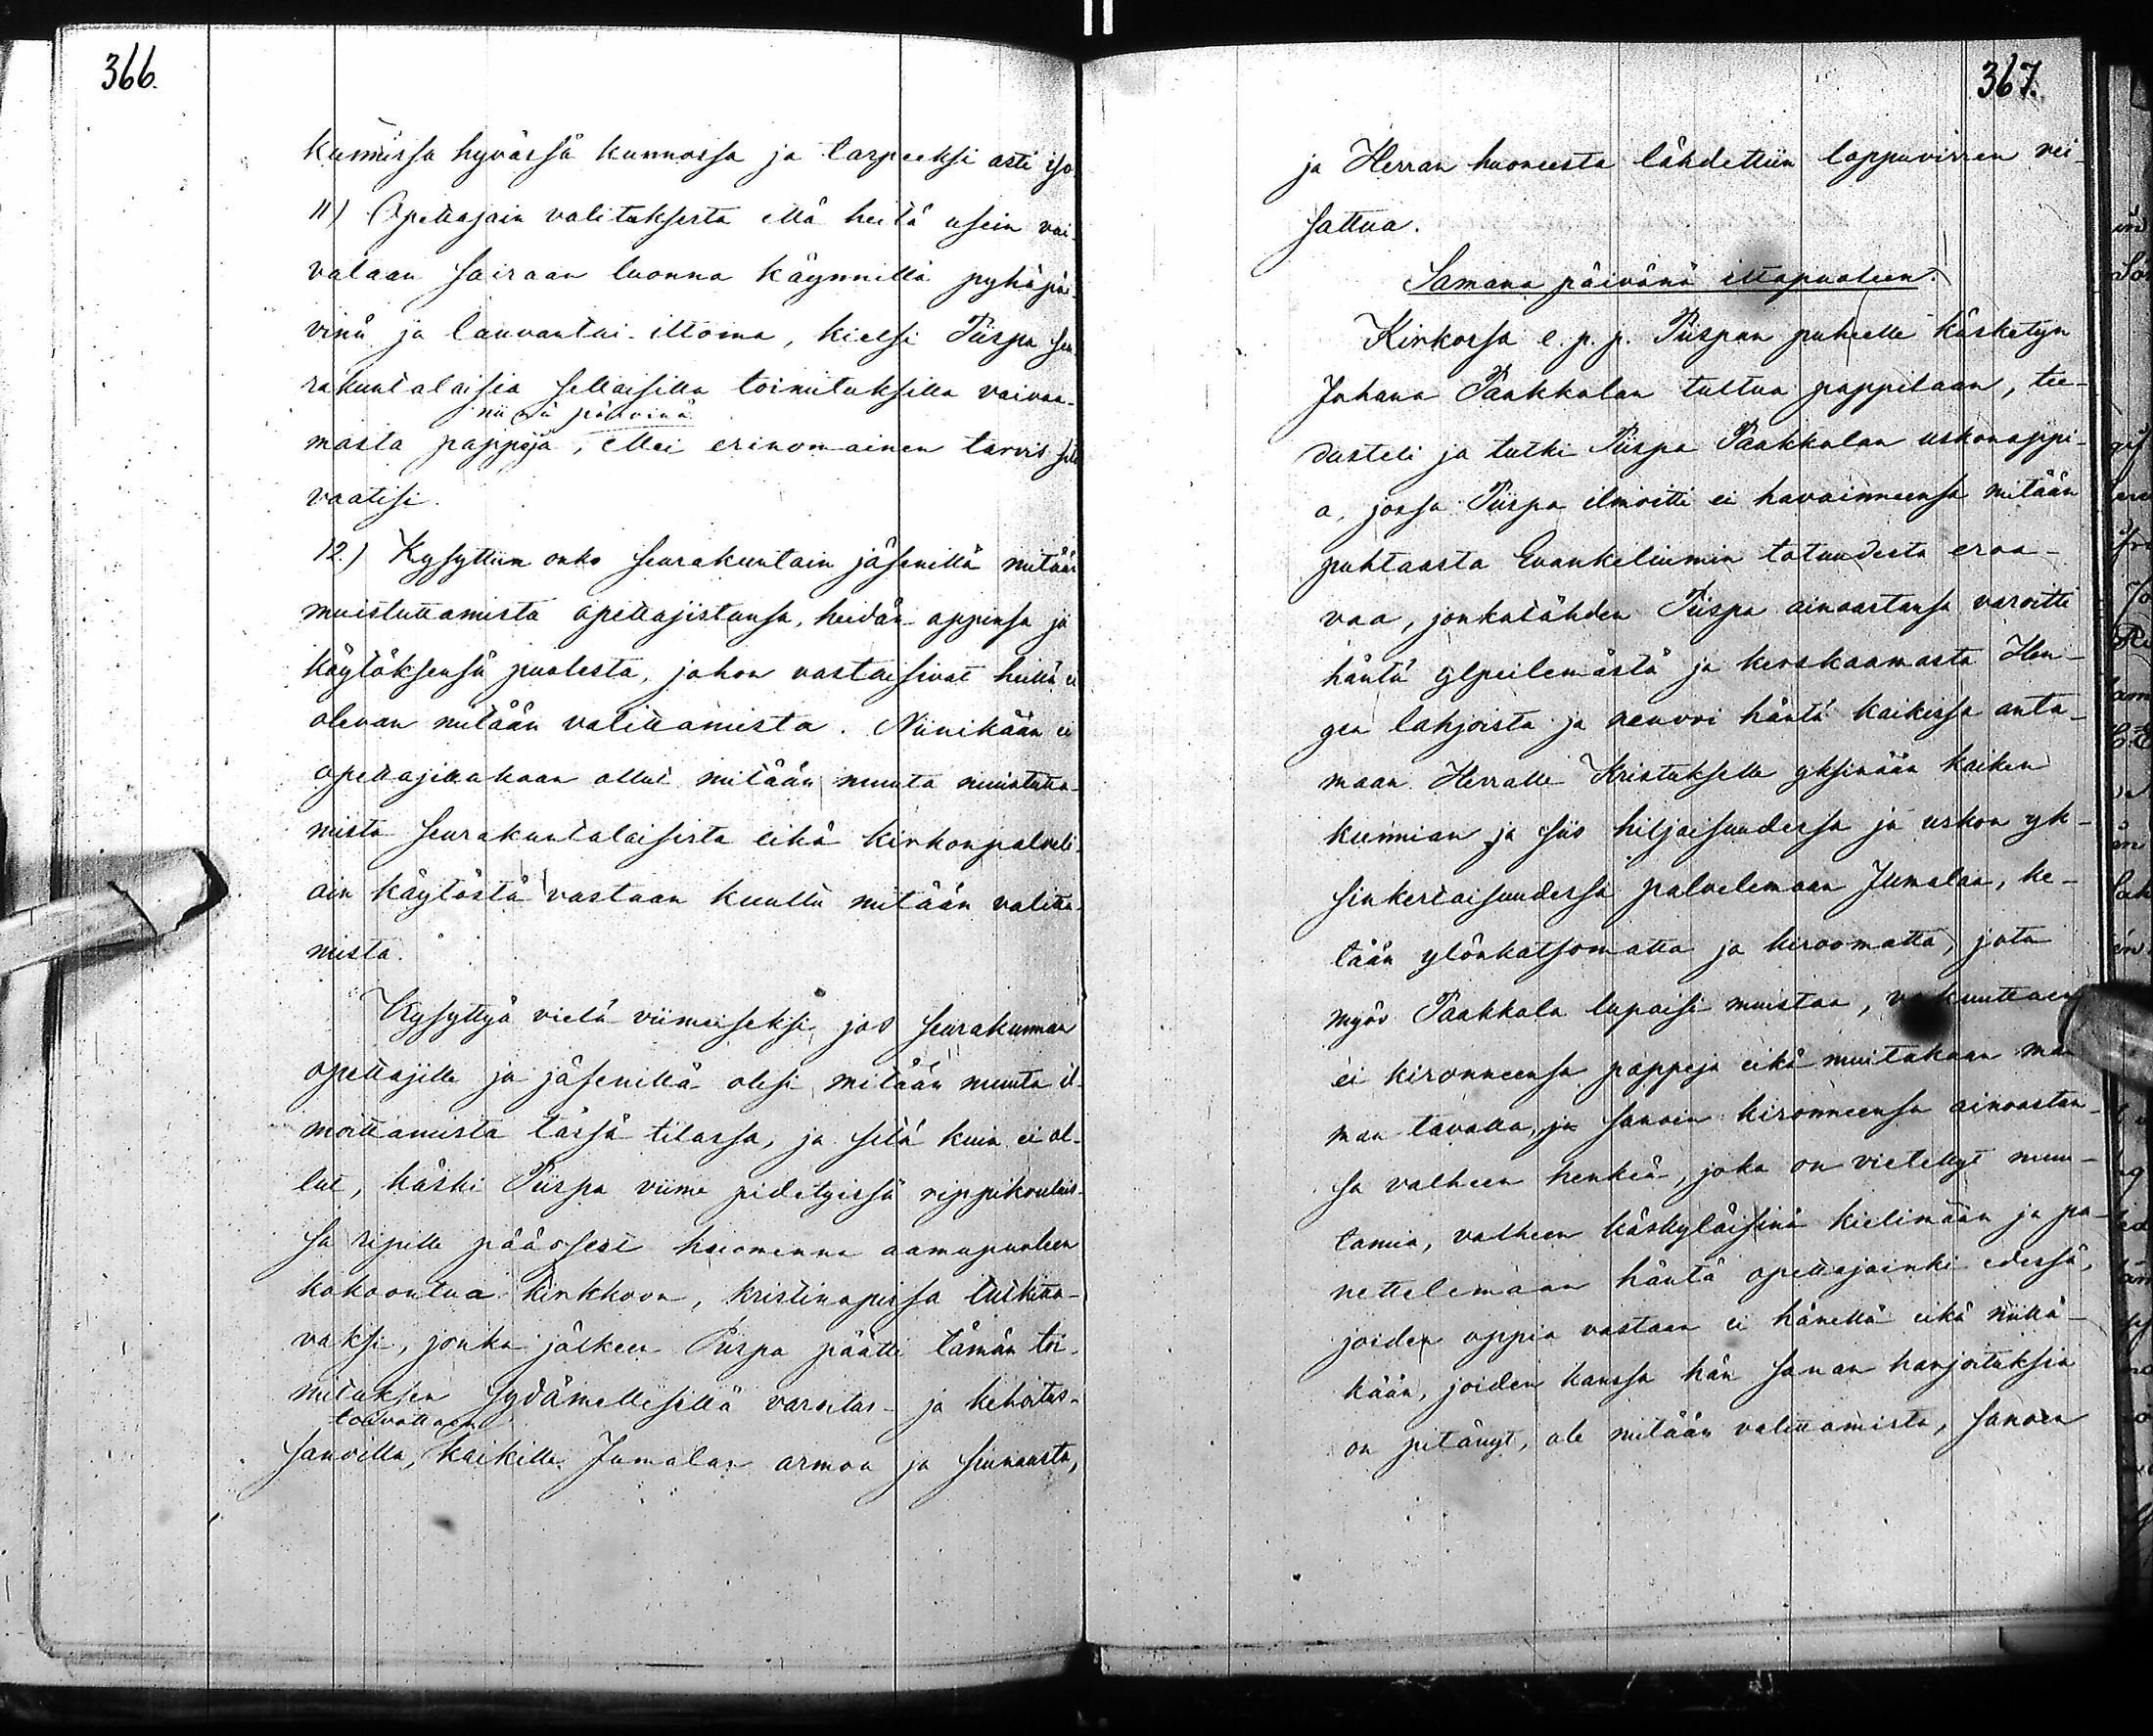 366.
kunnissa hyvässä kunnossa ja tarpeeksi asti iso
11) Opettajain valituksesta että heitä usein vai-
vataan sairaan luonna käynnillä pyhäpäi-
vinä ja lauvantai-iltoina, kielsi Piispa seu-
rakuntalaisia sellaisilla toimituksilla vaivaa-
niinä päivinä
masta pappeja, ellei erinomainen tarvis sitä
vaatisi.
12.) Kysyttiin onko seurakuntain jäsenillä mitään
muistuttamista opettajistansa, heidän oppinsa ja
käytöksensä puolesta, johon vastaisivat heillä ei
olevan mitään valittamista. Niinikään ei
opettajillakaan ollut mitään muuta muistutta-
mista seurakuntalaisista eikä kirkonpalveli-
ain käytöstä vastaan kuultu mitään valitta-
mista.
Kysyttyä vielä viimeiseksi jos seurakunnan
opettajilla ja jäsenillä olisi mitään muuta il-
moittamista tässä tilassa, ja sitä kuin ei ol-
lut, käski Piispa viime pidetyissä rippikouluis-
sa ripille päässeet huomenna aamupuoleen
kokoontua kirkkoon, kristinopissa tutkitta-
vaksi, jonka jälkeen Piispa päätti tämän toi-
mituksen sydämellisellä varoitus- ja kehoitus-
toivottaen
sanoilla, kaikille Jumalan armoa ja siunausta,
367.
ja Herran huoneesta lähdettiin loppuvirren vei-
sattua.
Samana päivänä iltapuoleen.
Kirkossa e. p. p. Piispan puheelle käsketyn
Juhana Paakkalan tultua pappilaan, tie-
dusteli ja tutki Piispa Paakkalan uskonoppi-
a, jossa Piispa ilmoitti ei havainneensa mitään
puhtaasta Evankeliumin totuudesta eroa-
vaa, jonkatähden Piispa ainoastansa varoitti
häntä ylpeilemästä ja kerskaamasta Hen-
gen lahjoista ja neuvoi häntä kaikissa anta-
maan Herralle Kristukselle yksinään kaiken
kunnian ja siis hiljaisuudessa ja uskon yk-
sinkertaisuudessa palvelemaan Jumalaa, ke-
tään ylönkatsomatta ja kiroomatta, jota
myös Paakkala lupaisi muistaa, vakuuttaen
ei kironneensa pappeja eikä muitakaan maa
man tavalla, ja sanoin kironneensa ainoastan-
sa valheen henkeä, joka on vietellyt muu-
tamia, valheen käskyläisinä kielimään ja pa-
nettelemaan häntä opettajainki edessä,
joiden oppia vastaan ei hänellä eikä niillä-
kään, joiden kanssa hän sanan harjoituksia
on pitänyt, ole mitään valittamista, sanoen